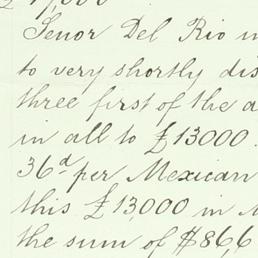 £ 17,000
Senor Del Rio
to very shortly dis
three first of the a
in all to £13000.
36d per Mexican
this £13,000 in
the sum of $86,6